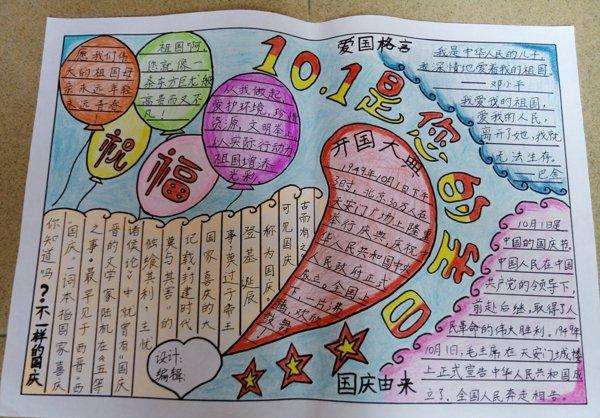 10.1是您的生日
愿我们伟
大的祖国母
亲永远年轻
永远青春
!
祖国啊
你就像一
条东方巨龙
高贵而又不
凡!
从我做起,
爱护环境,珍惜
资源,文明参
以实际行动为
祖国增添
光彩
祝
福
爱国格言
我是中华人民的儿子,
我深情地爱着我的祖国
—邓小平
我爱我的祖国,
爱我的人民,
离开了她,我就
无法生存。
—巴金
开国大典
1949年10月1日下午
3时,北京30万人在
天安门广场上隆重
举行庆典,庆祝
中华人民共和国中央
人民政府正式
成立。全国上
下,一片沸
腾,欢欣
鼓舞
10月1日是
中国的国庆节
中国人民在中国
共产党的领导下,
前赴后继,取得了人
民革命的伟大胜利。1949年
10月1日,毛主席在天安门城楼
上正式宣告中华人民共和国成
立了,全国人民奔走相告。
国庆由来
?·不一样的国庆
你知道吗
国庆一词本指国家喜庆
之事,最早见于西晋。西
晋的文学家陆机在《五等
诸侯论》中就曾有"国庆
独飨其利,主忧
莫与其害"的
记载,封建时代
国家喜庆的大
事,莫过于帝王
登基、诞辰
称为国庆。
可见国庆
古而有之
设计:
编辑: